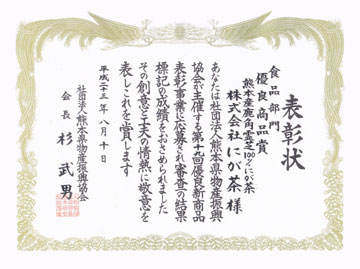 表彰状
食品部門
優良商品賞
熊本産鹿角霊芝100%にが茶
株式会社にが茶 様
あなたは社団法人熊本県物産振興
協会が主催する第十九回優良新商品
表彰事業に応募され審査の結果
標記の成績をおさめられました
その創意と工夫の情熱に敬意を
表しこれを賞します
平成二十三年八月十日
社団法人熊本県物産振興協会
会長 杉 武男